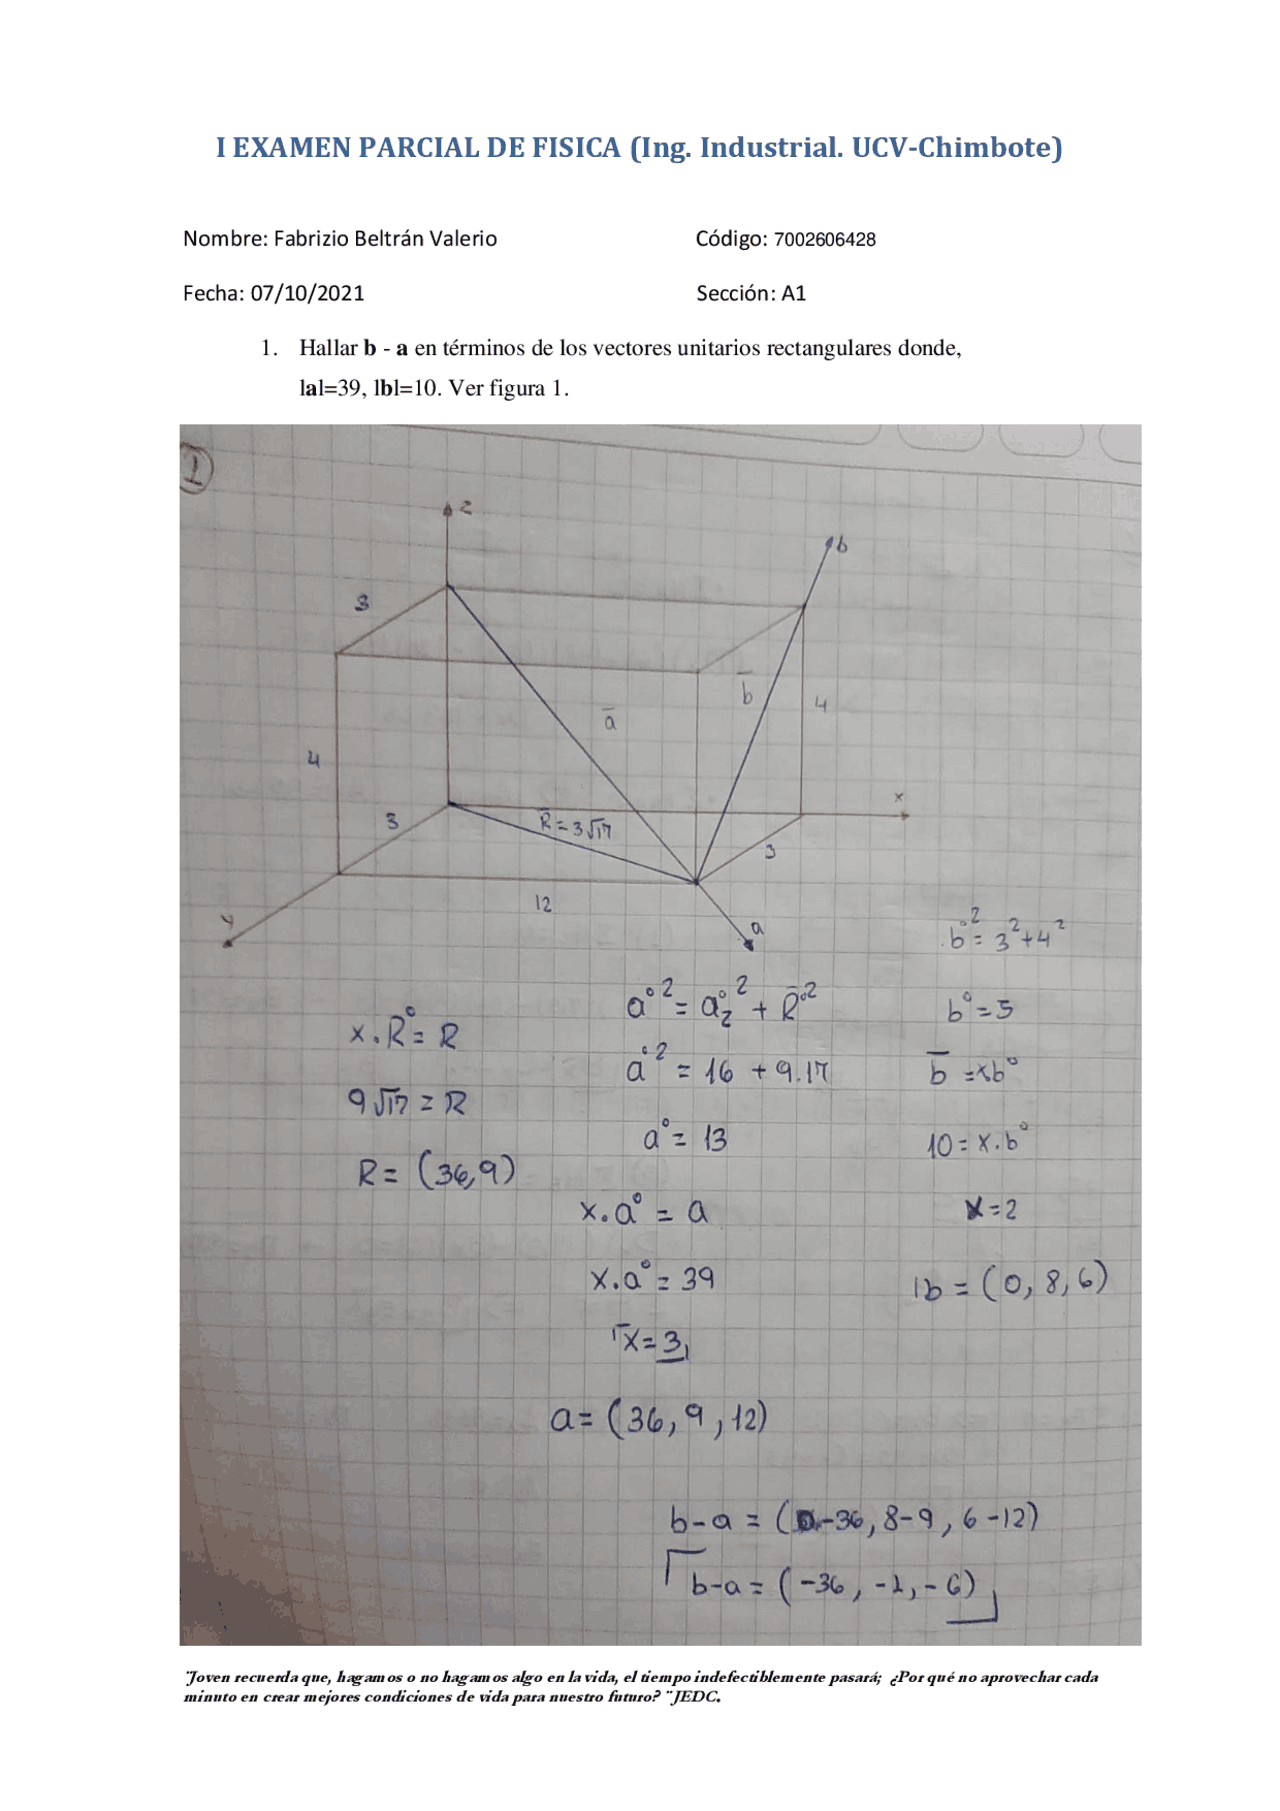 I EXAMEN PARCIAL DE FISICA (Ing. Industrial. UCV-Chimbote)
Nombre: Fabrizio Beltrán Valerio
Código: 7002606428
Fecha: 07/10/2021
Sección: A1
1. Hallar b - a en términos de los vectores unitarios rectangulares donde,
lal=39, lbl=10. Ver figura 1.
I
z
b
3
b̅
a̅
4
4
x
3
R̅=3√17
3
12
y
a
b°²= 3²+4²
a°²= a°z² + R°²
b°=5
x.R°= R
a°² = 16 + 9.17
b̅ =xb°
9√17 = R
a°= 13
10= x.b°
R= (36,9)
x.a° = a
x=2
x.a°= 39
lb = (0, 8, 6)
x=3
a= (36, 9, 12)
b-a = (0-36, 8-9, 6-12)
b-a= (-36, -1, -6)
¨Joven recuerda que, hagamos o no hagamos algo en la vida, el tiempo indefectiblemente pasará; ¿Por qué no aprovechar cada
minuto en crear mejores condiciones de vida para nuestro futuro?¨JEDC.